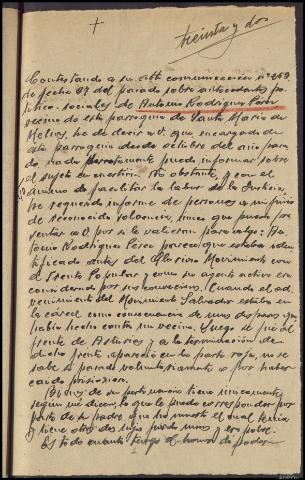 +
treinta y dos
Contestando a su atta comunicación nº 259
de fecha 27 del pasado sobre antecedentes po-
lítico-sociales de Antonio Rodríguez Pérez
vecino de esta parroquia de Santa María de
he de decir a V. que, encargado de
esta parroquia desde octubre del año pasa-
do, nada directamente puedo informar sobre
el sujeto en cuestión. No obstante, y con el
ánimo de facilitar la labor de la Justicia,
he requerido informe de personas a mi juicio
de reconocida solvencia, único que puedo pre-
sentar a V. por si le valieran para algo: An-
tonio Rodríguez Pérez parece que estaba iden-
tificado antes del Glorioso Movimiento con
el Frente Popular y como su agente activo era
considerado por sus convecinos. Cuando el ad-
venimiento del Movimiento Salvador estaba en
la cárcel como consecuencia de unos disparos que
había hecho contra un vecino. Luego se fué al
frente de Asturias y a la terminación de
dicho frente apareció en la parte roja, no se
sabe si pasado voluntariamente o por haber
caído prisionero.
Bienes de su pertenencia tiene únicamente,
según me dicen, lo que le pueda corresponder por
parte de su padre que ha muerto el cual tenía
y tiene otros dos hijos
Es todo cuanto tengo el honor de poder